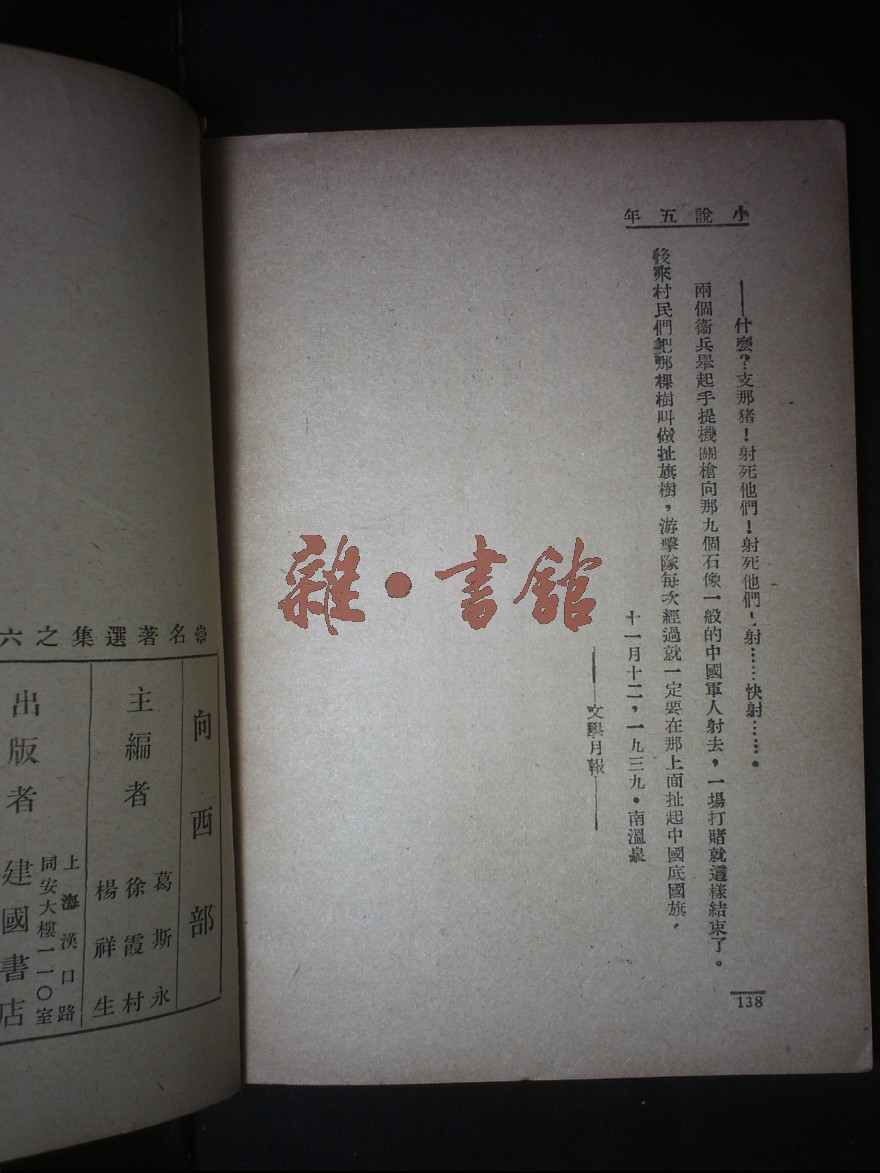 小說五年
——什麼？支那猪！射死他們！射死他們！射……快射……。
兩個衞兵舉起手提機關槍向那九個石像一般的中國軍人射去，一場打賭就這樣結束了。
後來村民們把那棵樹叫做扯旗樹，游擊隊每次經過就一定要在那上面扯起中國底國旗，
十一月十二，一九三九・南溫泉
——文學月報——
138
雜・書館
名著選集之六
向西部
主編者
葛斯永
徐霞村
楊祥生
出版者
上海漢口路
同安大樓一一〇室
建國書店